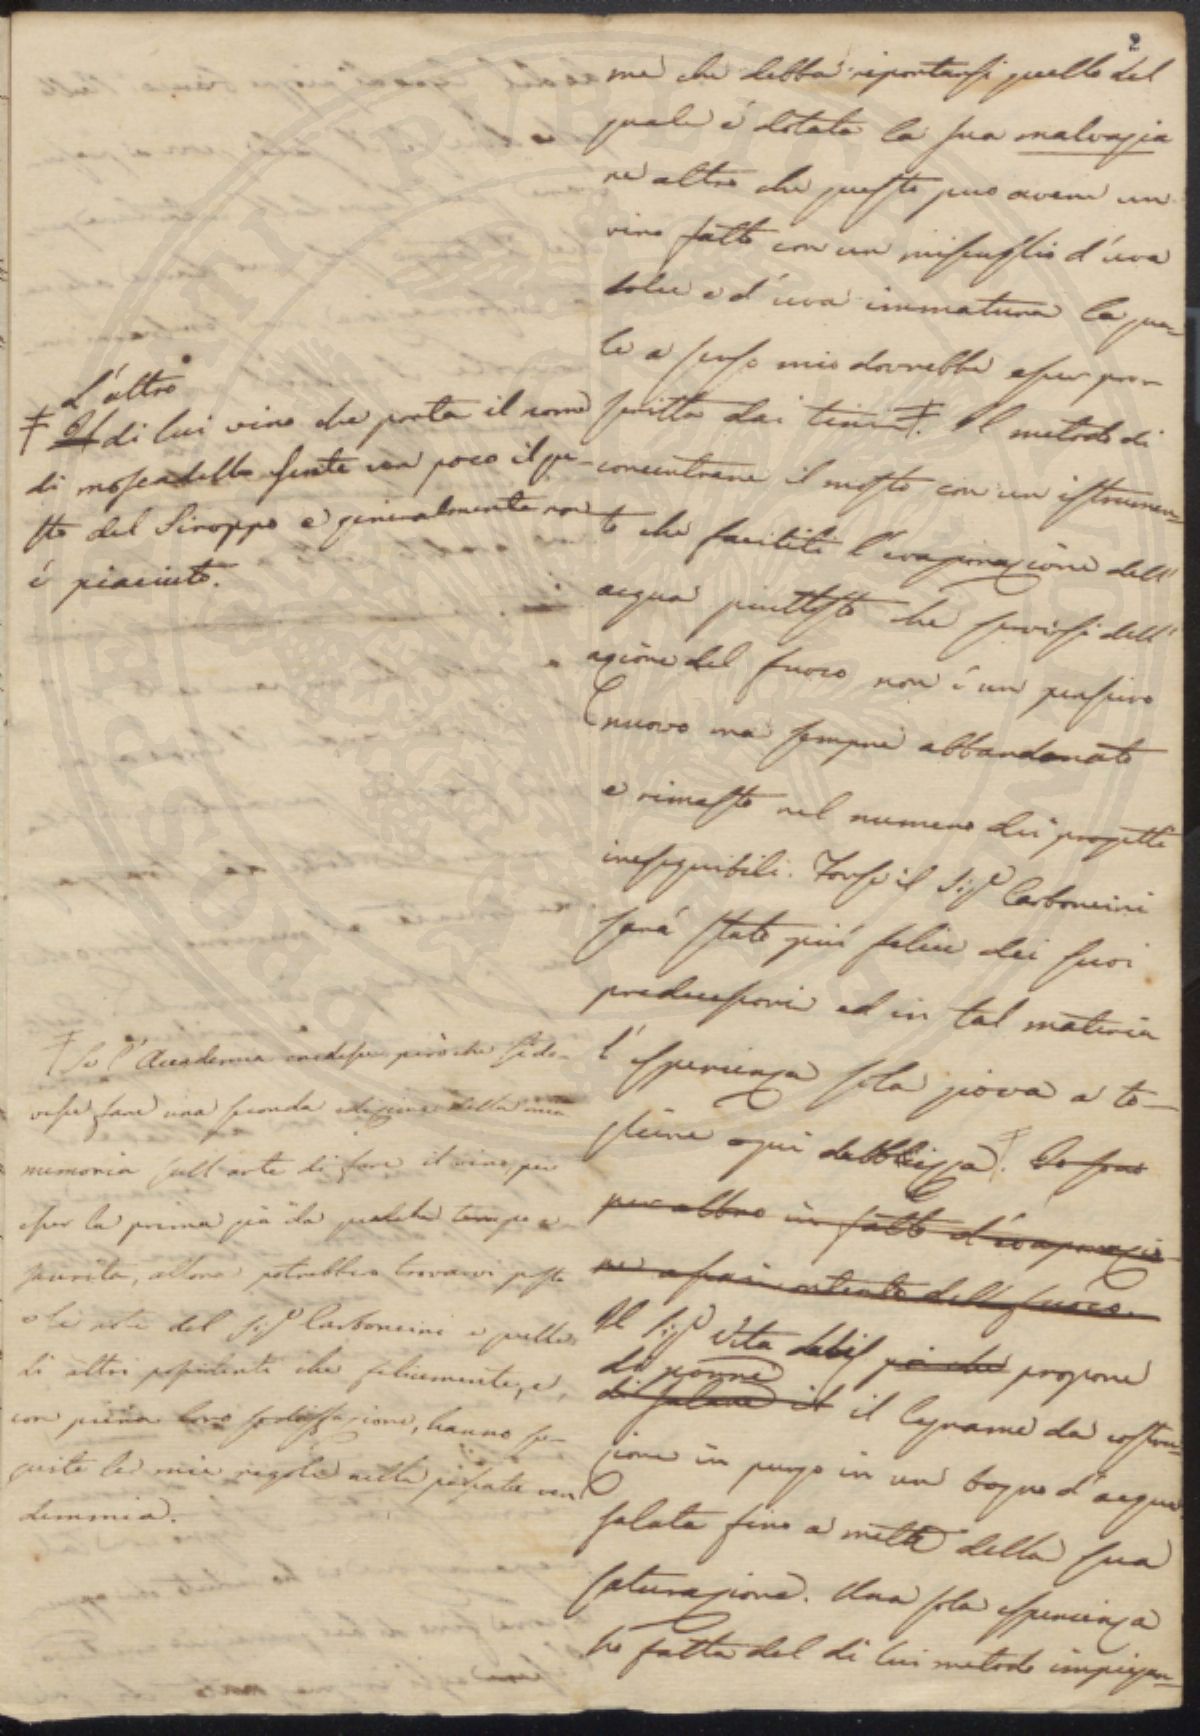 2
me che debba riportarsi quello del
quale é dotata la sua malvagia
ne altro che questo puo avere un
vino fatto con un miscuglio d'uva
dolce e d'uva immatura la qua-
le a senso mio dovrebbe esser pro-
scritta dai tini ‡. Il metodo di
concentrare il mosto con un istrumen-
to che faciliti l'evaporazione dell'
acqua piuttosto che servirsi dell'
azione del fuoco non é un pensiero
nuovo ma sempre abbandonato
e rimasto nel numero dei progetti
ineseguibili. Forse il Sigr Carboncini
sará stato piú felice dei suoi
predecessori ed in tal materia
l'esperienza sola giova a to-
gliere ogni dubbiezza ‡.
per altro in fatto d'evaporazio-
ne
Il Sigr Vita poi che propone
di porre
di salare il il legname da costru-
zione in purgo in un bagno d'acqua
salata fino a metà della sua
saturazione. Una sola esperienza
ho fatta del di lui metodo impiegan-
L'altro
‡ Il di lui vino che porta il nome
di moscadello sente un poco il gu-
sto del Siroppo e generalmente non
é piaciuto.
‡ Se l'Accademia credesse però che si do-
vesse fare una seconda edizione della mia
memoria sull'arte di fare il vino, per
esser la prima già da qualche tempo e-
saurita, allora potrebbero trovarvi posto
le note del Sigr Carboncini e quelle
di altri possidenti che felicemente, e
con piena loro sodisfazione, hanno se-
guite le mie regole nella passata ven-
demmia.